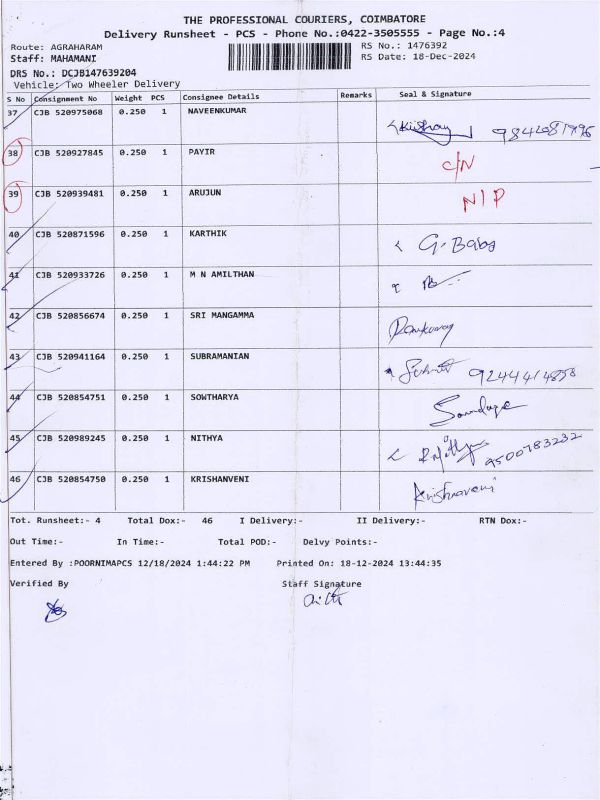 THE PROFESSIONAL COURIERS, COIMBATORE
Delivery Runsheet - PCS - Phone No.:0422-3505555 - Page No.:4
Route: AGRAHARAM RS No.: 1476392
Staff: MAHAMANI RS Date: 18-Dec-2024
DRS No.: DCJB147639204
Vehicle: Two Wheeler Delivery
S No Consignment No Weight PCS Consignee Details Remarks Seal & Signature
37 CJB 520975068 0.250 1 NAVEENKUMAR
38 CJB 520927845 0.250 1 PAYIR C/N
39 CJB 520939481 0.250 1 ARUJUN N/P
40 CJB 520871596 0.250 1 KARTHIK G. Babu
41 CJB 520933726 0.250 1 M N AMILTHAN
42 CJB 520856674 0.250 1 SRI MANGAMMA
43 CJB 520941164 0.250 1 SUBRAMANIAN
44 CJB 520854751 0.250 1 SOWTHARYA
45 CJB 520989245 0.250 1 NITHYA 9500783232
46 CJB 520854750 0.250 1 KRISHANVENI Krishnaveni
Tot. Runsheet:- 4 Total Dox:- 46 I Delivery:- II Delivery:- RTN Dox:-
Out Time:- In Time:- Total POD:- Delvy Points:-
Entered By :POORNIMAPCS 12/18/2024 1:44:22 PM Printed On: 18-12-2024 13:44:35
Verified By Staff Signature